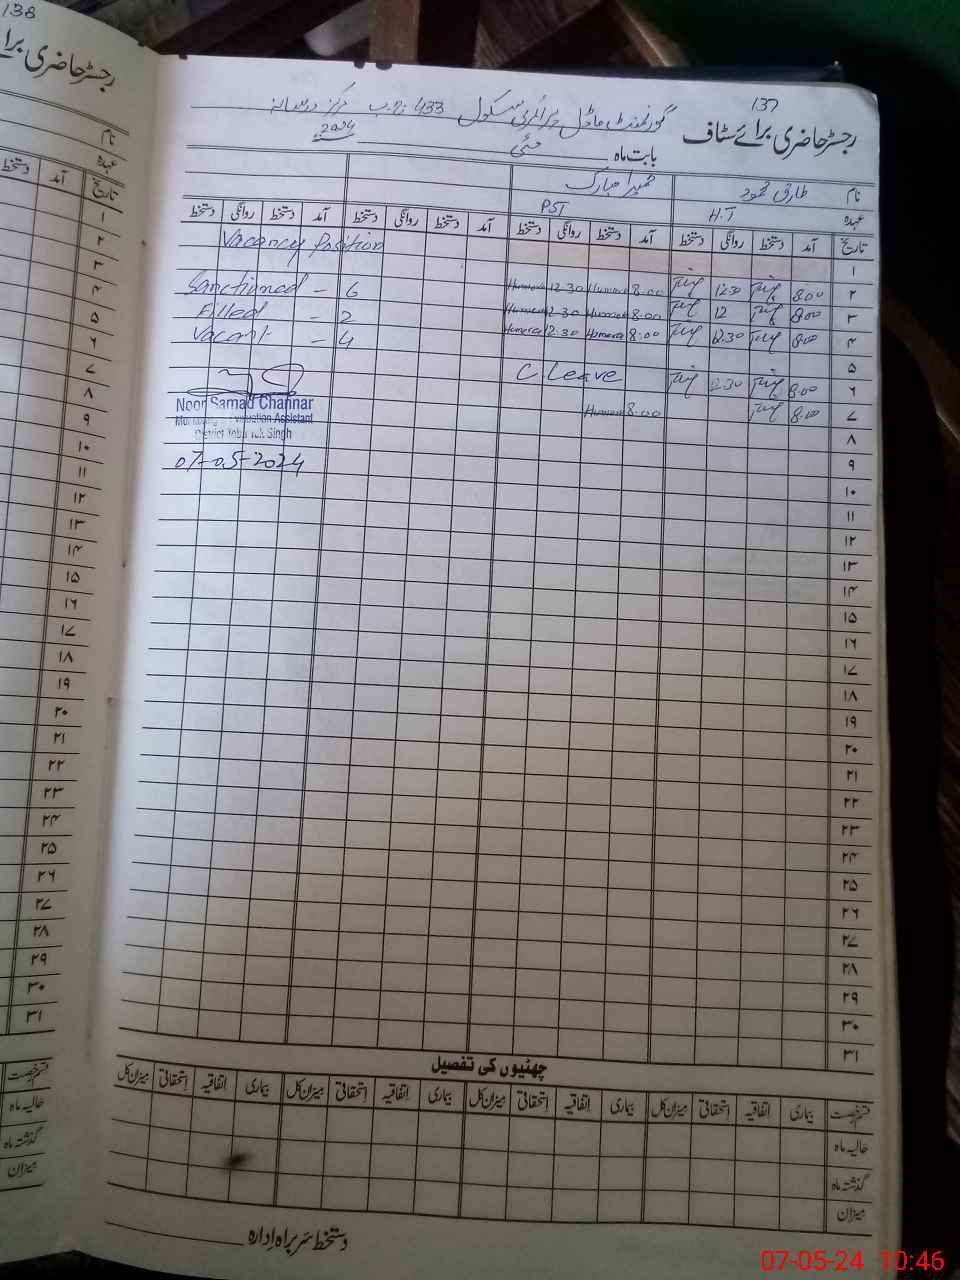 138
رجسٹر حاضری برائے
نام
عہدہ
تاریخ آمد دستخط
۱
۲
۳
۴
۵
۶
۷
۸
۹
۱۰
۱۱
۱۲
۱۳
۱۴
۱۵
۱۶
۱۷
۱۸
۱۹
۲۰
۲۱
۲۲
۲۳
۲۴
۲۵
۲۶
۲۷
۲۸
۲۹
۳۰
۳۱
قسم رخصت
حالیہ ماہ
گذشتہ ماہ
میزان
137
رجسٹر حاضری برائے سٹاف گورنمنٹ ماڈل پرائمری سکول 433 ج ب مرکز
بابت ماہ مئی 2024
نام طارق محمود حمیرا مبارک
عہدہ H.T PST
تاریخ آمد دستخط روانگی دستخط آمد دستخط روانگی دستخط آمد دستخط روانگی دستخط آمد دستخط روانگی دستخط
Vacancy Position
۱
۲ 8:00 12:30 8:00 Humera 12:30 Humera Sanctioned - 6
۳ 8:00 12 8:00 Humera 12:30 Humera Filled - 2
۴ 8:00 12:30 8:00 Humera 12:30 Humera Vacant - 4
۵
۶ 8:00 12:30 C. Leave
۷ 8:00 8:00 Humera
Noor Samad Channar
Monitoring & Evaluation Assistant
District Toba Tek Singh
07-05-2024
۸
۹
۱۰
۱۱
۱۲
۱۳
۱۴
۱۵
۱۶
۱۷
۱۸
۱۹
۲۰
۲۱
۲۲
۲۳
۲۴
۲۵
۲۶
۲۷
۲۸
۲۹
۳۰
۳۱
چھٹیوں کی تفصیل
قسم رخصت بیماری اتفاقیہ استحقاقی میزان کل بیماری اتفاقیہ استحقاقی میزان کل بیماری اتفاقیہ استحقاقی میزان کل بیماری اتفاقیہ استحقاقی میزان کل
حالیہ ماہ
گذشتہ ماہ
میزان
دستخط سربراہ ادارہ
07-05-24 10:46